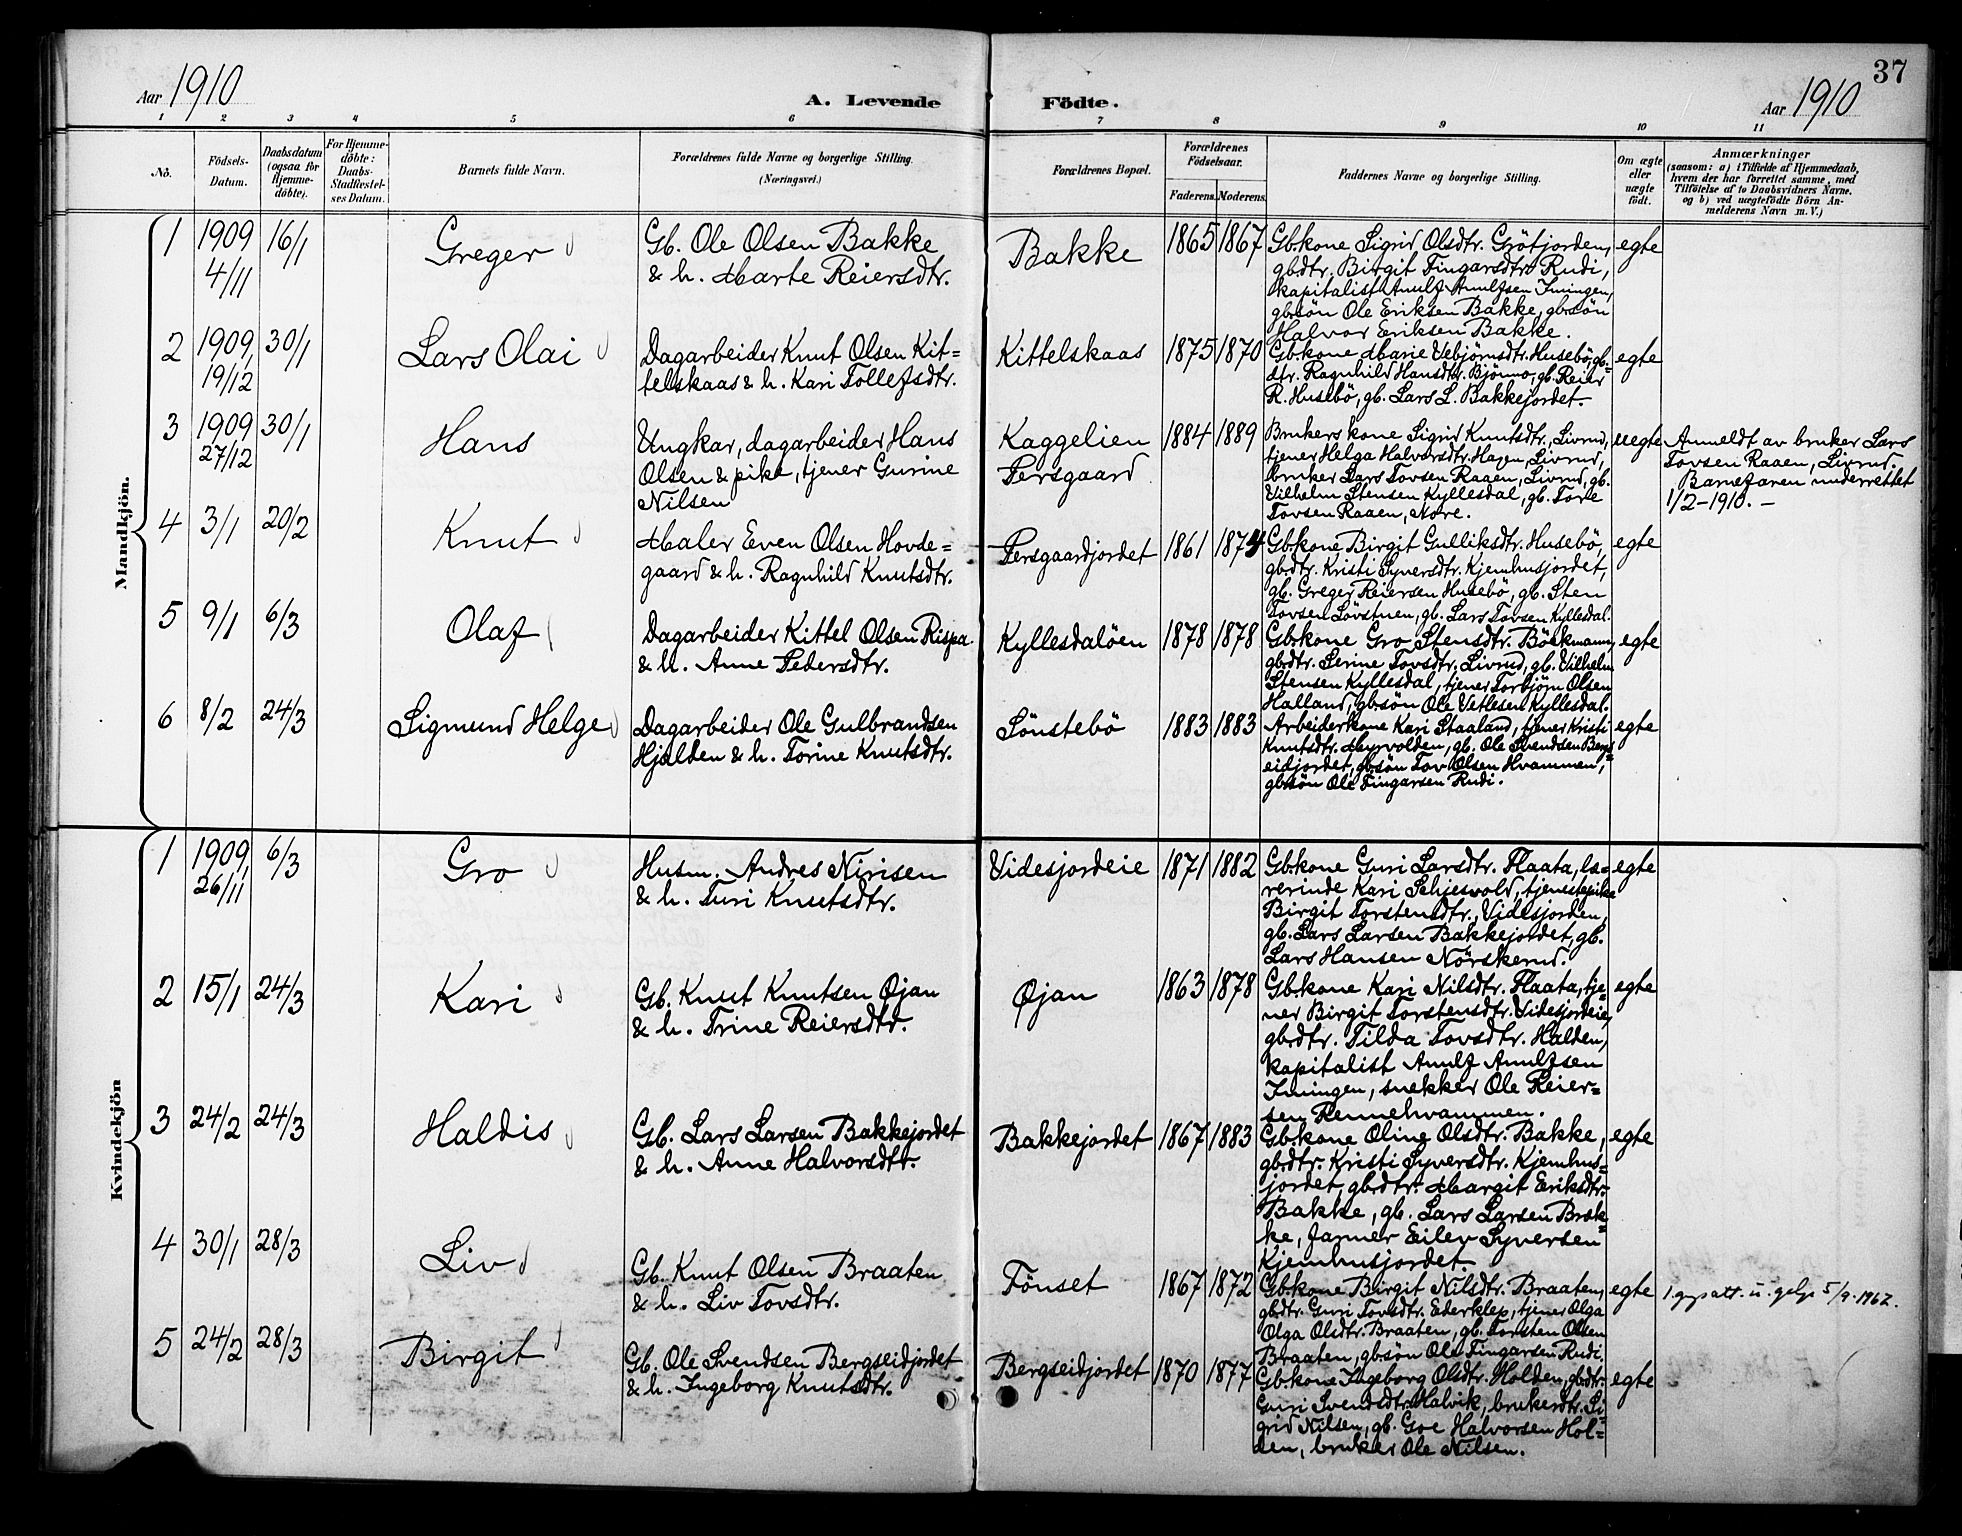 37
Aar 1910
A. Levende Födte.
Aar 1910
1 2 3 4 5 6 7 8 9 10 11
No.
Födsels-Datum.
Daabsdatum (ogsaa for Hjemme-döbte).
For Hjemme-döbte: Daabs-Stadfæstel-ses Datum.
Barnets fulde Navn.
Forældrenes fulde Navne og borgerlige Stilling.
(Næringsvei.)
Forældrenes Bopæl.
Forældrenes Födselsaar.
Faderens. Moderens.
Faddernes Navne og borgerlige Stilling.
Om ægte eller uægte födt.
Anmærkninger
(saasom: a) i Tilfælde af Hjemmedaab,
hvem der har forrettet samme, med
Tilföielse af to Daabsvidners Navne.
og b) ved uægtefödte Börn An-
melderens Navn m. V.)
Mandkjön.
1 1909 4/11 16/1 Greger
Gb. Ole Olsen Bakke
& h. Marte Reiersdtr.
Bakke 1865 1867
Gbkone Sigrid Olsdtr. Grötjorden,
gbdtr. Birgit Fingarsdtr. Rudi,
kapitalist Arnulf Arnulfsen Imingen,
gbsön Ole Eriksen Bakke, gbsön
Halvor Eriksen Bakke.
egte
2 1909, 19/12 30/1 Lars Olai
Dagarbeider Knut Olsen Kit=
telskaas & h. Kari Tollefsdtr.
Kittelskaas 1875 1870
Gbkone Marie Vebjörnsdtr. Husebö, gb=
dtr. Ragnhild Hansdtr. Bjönno, gb. Reier
R. Husebö, gb. Lars L. Bakkejordet.
egte
3 1909 27/12 30/1 Hans
Ungkar, dagarbeider Hans
Olsen & pike, tjener Gurine
Nilsen
Kaggelien
Persgaard
1884 1889
Brukers kone Sigrid Knutsdtr., Livrud,
tjener Helga Halvorsdtr. Hagen, Livrud,
bruker Lars Tovsen Raaen, Livrud, gb.
Vilhelm Stensen Kyllesdal, gb. Tore
Tovsen Raaen, Nore.
uegte
Anmeldt av bruker Lars
Tovsen Raaen, Livrud.
Barnefaren underrettet
1/2-1910. –
4 3/1 20/2 Knut
Maler Even Olsen Hovde=
gaard & h. Ragnhild Knutsdtr.
Persgaardjordet 1861 1874
Gbkone Birgit Gulliksdtr. Husebö,
gbdtr. Kristi Syversdtr. Kjemhusjordet,
gb. Greger Reiersen Husebö, gb. Sten
Tovsen Lövstuen, gb. Lars Tovsen Kyllesdal.
egte
5 9/1 6/3 Olaf
Dagarbeider Kittel Olsen Rispa
& h. Anne Pedersdtr.
Kyllesdalöen 1878 1878
Gbkone Gro Stensdtr. Böckmann,
gbdtr. Serine Tovsdtr. Livrud, gb. Vilhelm
Stensen Kyllesdal, tjener Torbjörn Olsen
Halland, gbsön Ole Vetlesen Kyllesdal.
egte
6 8/2 24/3 Sigmund Helge
Dagarbeider Ole Gulbrandsen
Hjalden & h. Torine Knutsdtr.
Sönstebö 1883 1883
Arbeiderkone Kari Staaland, tjener Kristi
Knutsdtr. Myrvolden, gb. Ole Svendsen Bergs=
eidjordet, gbsön Tov Olsen Hvammen,
gbsön Ole Fingarsen Rudi.
egte
Kvindekjön
1 1909, 26/11 6/3 Gro
Husm. Andres Nirisen
& h. Turi Knutsdtr.
Videsjordeie 1871 1882
Gbkone Guri Larsdtr. Flaata, læ=
rerinde Kari Schjesvold, tjenestepike
Birgit Torstensdtr., Videsjorden,
gb. Lars Larsen Bakkejordet, gb.
Lars Hansen Nörskerud.
egte
2 15/1 24/3 Kari
Gb. Knut Knutsen Øjan
& h. Trine Reiersdtr.
Øjan 1863 1878
Gbkone Kari Nilsdtr. Flaata, tje=
ner Birgit Torstensdtr. Videsjordeie,
gbdtr. Tilda Tovsdtr. Halden,
kapitalist Arnulf Arnulfsen
Imingen, snekker Ole Reier=
sen Rennehvammen.
egte
3 24/2 24/3 Haldis
Gb. Lars Larsen Bakkejordet
& h. Anne Halvorsdtr.
Bakkejordet 1867 1883
Gbkone Oline Olsdtr. Bakke,
gbdtr. Kristi Syversdtr. Kjemhus=
jordet, gbdtr. Margit Eriksdtr.
Bakke, gb. Lars Larsen Bak=
ke, farmer Eilev Syversen
Kjemhusjordet.
egte
4 30/1 28/3 Liv
Gb. Knut Olsen Braaten
& h. Liv Tovsdtr.
Tönset 1867 1872
Gbkone Birgit Nilsdtr. Braaten,
gbdtr. Guri Tovsdtr. Ederklep, tjener Olga
Olga Olsdtr. Braaten, gb. Torsten Olsen
Braaten, gbsön Ole Fingarsen Rudi.
egte
5/9-1962.
5 24/2 28/3 Birgit
Gb. Ole Svendsen Bergseidjordet
& h. Ingeborg Knutsdtr.
Bergseidjordet 1870 1877
Gbkone Ingeborg Olsdtr. Holden, gbdtr.
Guri Svendsdtr. Halvik, brukerdtr. Si=
grid Nilsen, gb. Goe Halvorsen Hol=
den, bruker Ole Nilsen.
egte